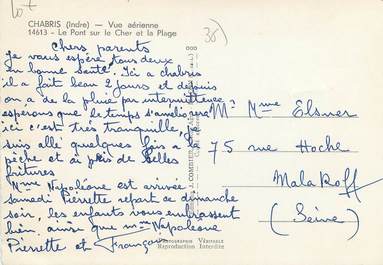 CHABRIS (Indre) — Vue aérienne
14613 - Le Pont sur le Cher et la Plage
Chers parents
Je vous espère tous deux
en bonne santé. Ici a chabris
il a fait beau 2 jours et depuis
on a de la pluie par intermittence
esperons que le temps s'améliorera
ici c'est très tranquille, je
suis allé quelques fois à la
pêche et ai pris de belles
fritures
Mme Napoléone est arrivée
samedi Pierrette repart ce dimanche
soir, les enfants vous embrassent
bien ainsi que Mme Napoleone
Pierrette et François
Mr Mme Elsner
75 rue Hoche
Malakoff
(Seine)
PHOTOGRAPHIE VÉRITABLE
Reproduction Interdite